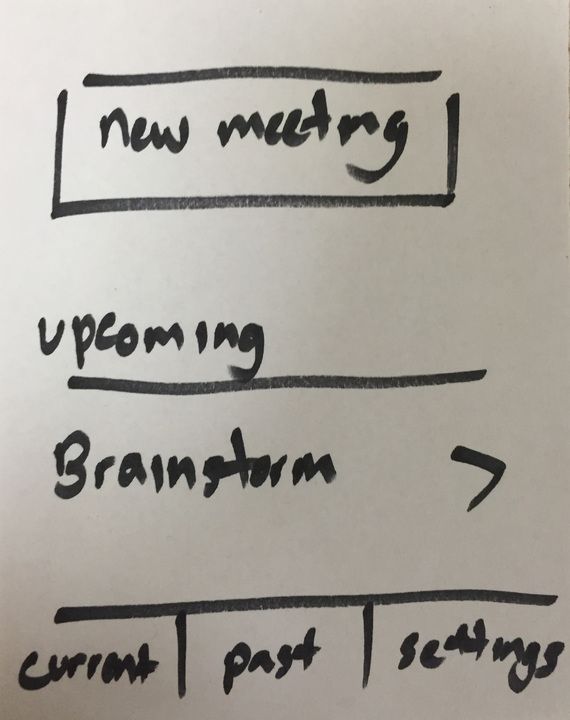 new meeting
upcoming
Brainstorm >
current | past | settings